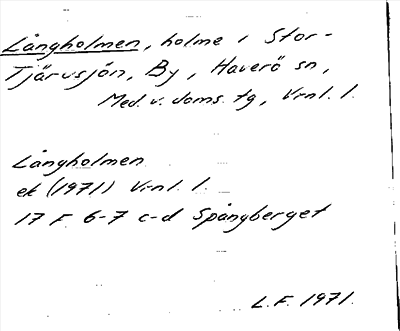 Långholmen, holme i Stor-
Tjärusjön, By, Haverö sn,
Med. v. doms. tg, Vrnl. l.
Långholmen
ek (1971) Vrnl. l.
17 F 6-7 c-d Spångberget
L.F. 1971.